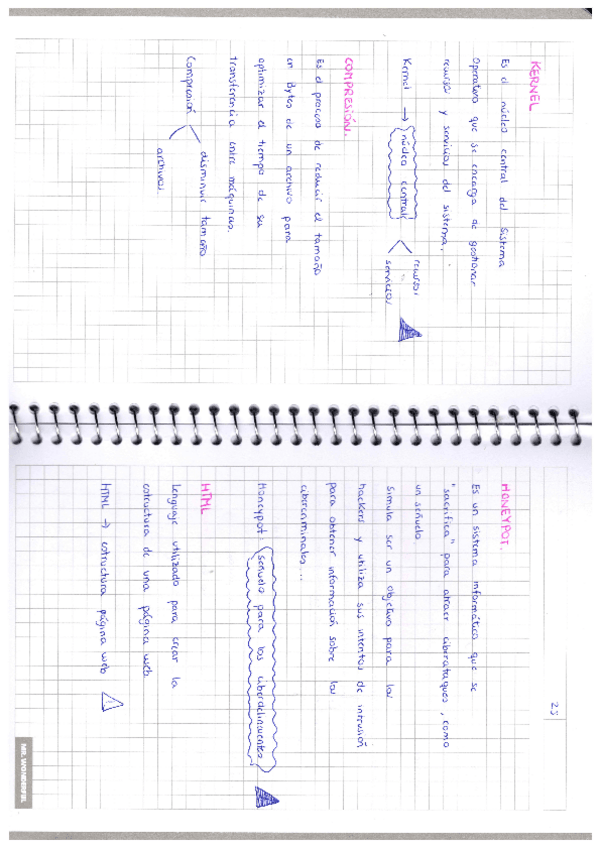 KERNEL
Es el núcleo central del sistema
operativo que se encarga de gestionar
recursos y servicios del sistema.
Kernel → núcleo central < recursos
servicios
COMPRESIÓN.
Es el proceso de reducir el tamaño
en Bytes de un archivo para
optimizar el tiempo de su
transferencia entre máquinas.
Compresión < disminuir tamaño
archivos.
25
HONEYPOT.
Es un sistema informático que se
"sacrifica" para atraer ciberataques, como
un señuelo
Simula ser un objetivo para los
hackers y utiliza sus intentos de intrusión
para obtener información sobre los
cibercriminales...
Honeypot: señuelo para los ciberdelincuentes
HTML
Lenguaje utilizado para crear la
estructura de una página web
HTML → estructura página web
MR. WONDERFUL